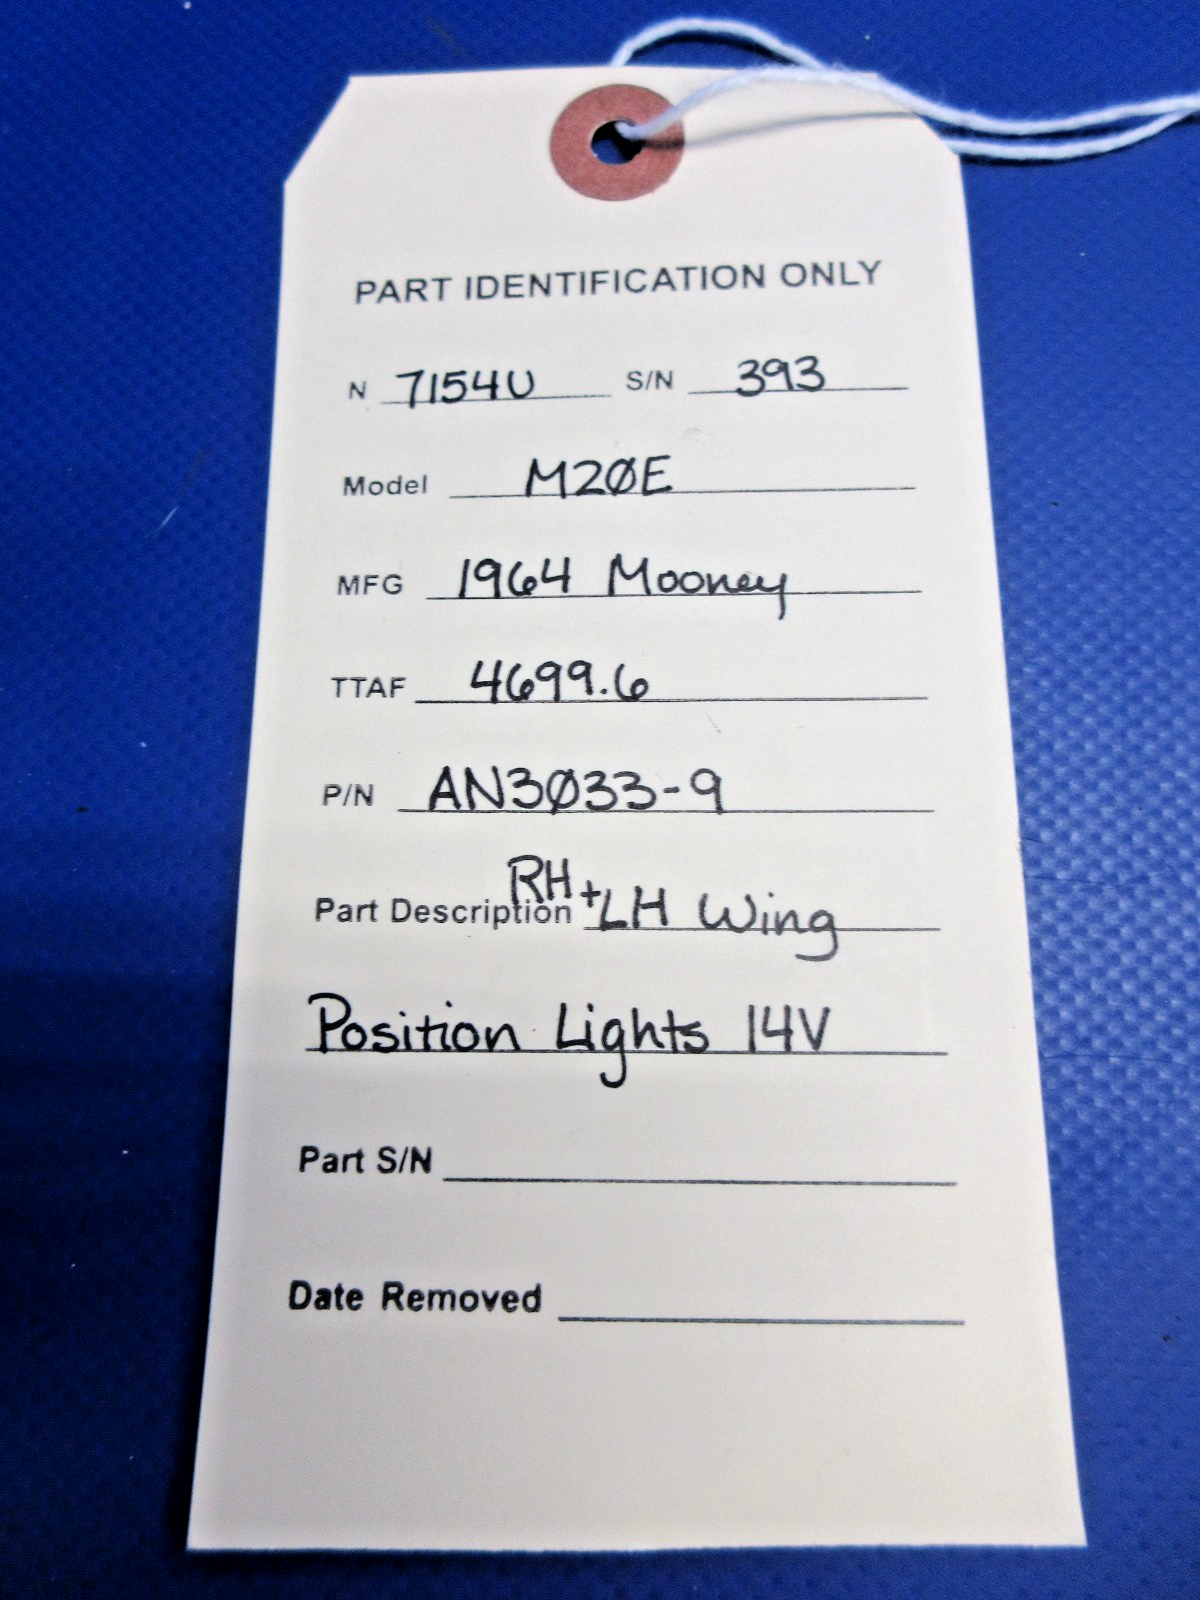 PART IDENTIFICATION ONLY
N 7154U S/N 393
Model M20E
MFG 1964 Mooney
TTAF 4699.6
P/N AN3033-9
Part Description RH + LH Wing
Position Lights 14V
Part S/N
Date Removed